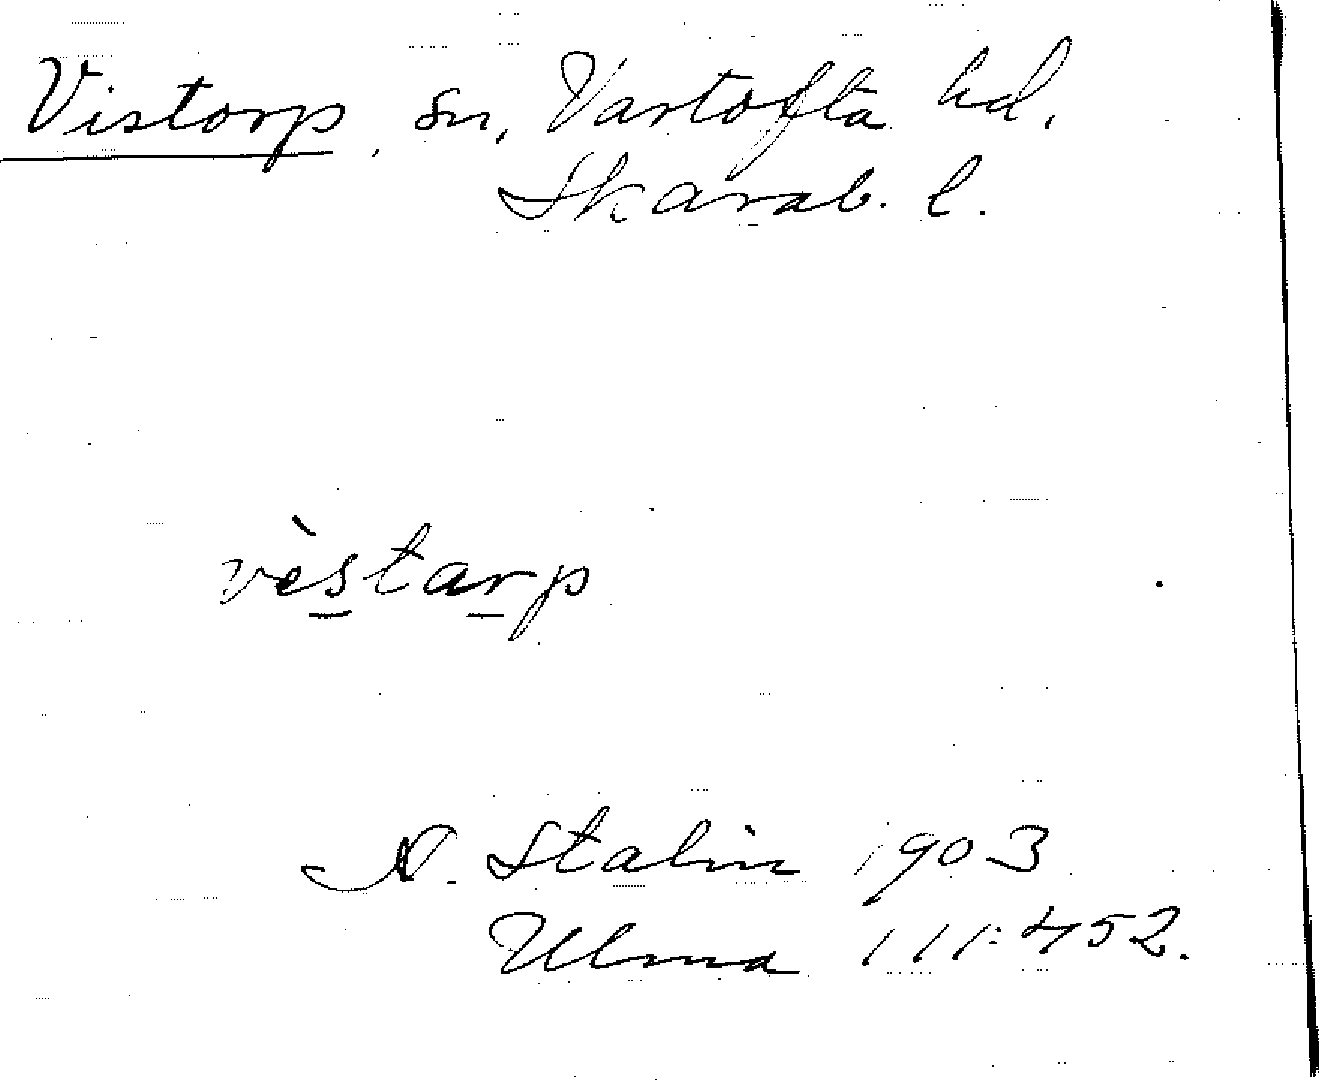 Vistorp, sn, Vartofta hd,
Skarab. l.
vèstarp
N. Stalin 1903
Ulma 111:452.